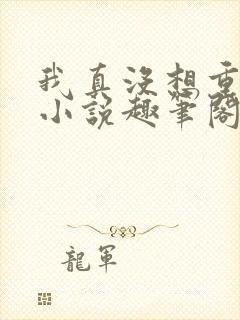 我真没想重
小說趣筆閣
龍軍